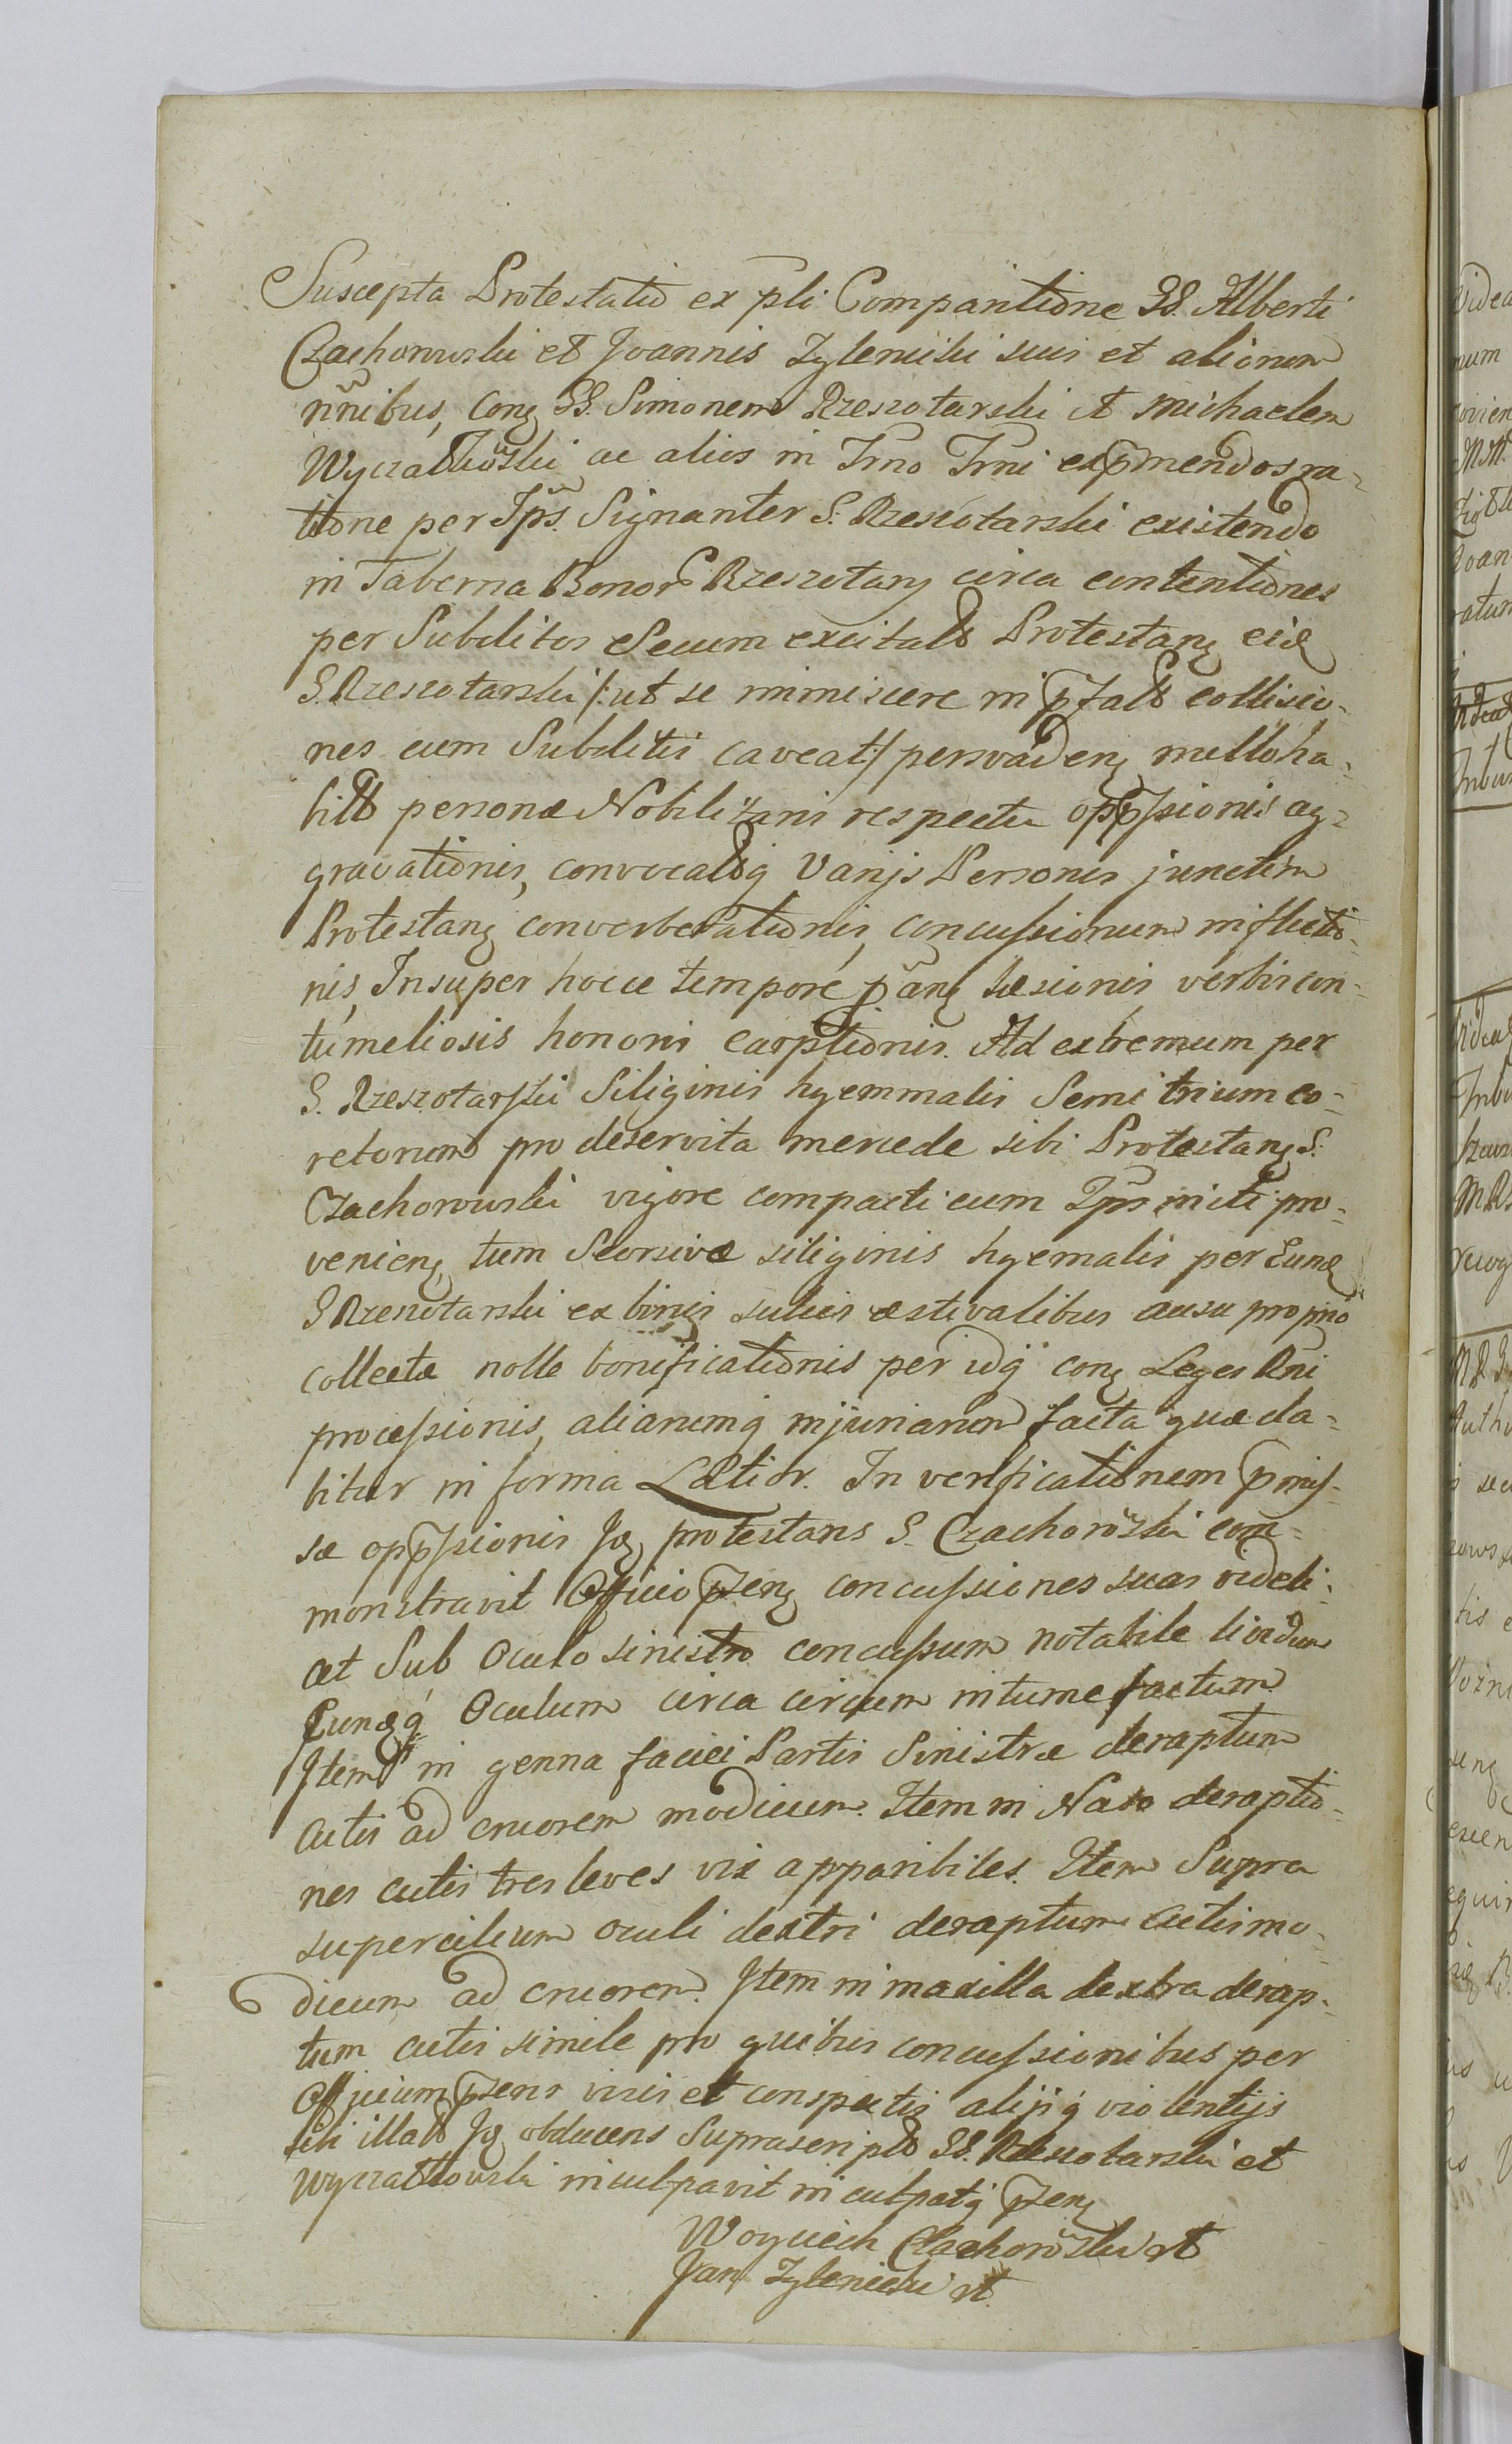 Suscepta Protestatio ex pli Comparitione GG. Alberti
Czachorowski et Joannis Zylenicki suis et aliorum
nñibus, cong GG. Simonem Rzeszotarski et Michaelem
Wyczałkow̃ski ac alios in Trno Trni expmendos ra-
tione per Ips̃. Signanter G. Rzeszotarski existendo
in Taberna Bonor Rzeszotary circa contentiones
per Subditos Secum excitats Protestang eid
G. Rzeszotarski /: ut se immiscere in pfats collisio-
nes cum Subditis caveat :/ persvadeng nulloha-
bito personæ Nobilitaris respectu oppssionis ag-
gravationis, convocatisq Varijs Personis junctim
Protestang converberationis, concussionum inflicti-
nis, Insuper hocce tempore p̃ang læsionis verbis con-
tumeliosis honoris carptionis. Ad extremum per
G. Rzeszotarski Siliginis hyemmalis Semi trium co-
retorum pro deservita mercede sibi Protestang G.
Czachorowski vigore compacti cum Ips initi pro-
venieng, tum Seorsivæ siliginis hyemalis per Eund
G Rzeszotarski ex binis sulcis æstivalibus ausu proprio
collectæ nolle bonificationis per idq cong Leges Rni
processionis, aliarumq injuriarum facta quæ da-
bitur in forma Latior. In verificationem pmis-
sæ oppssionis Jdg protestans G. Czachorow̃ski com-
monstravit Officio pseng concussiones suas videli-
cet Sub Oculo sinistro concussum notabile lividum
Eundq Oculum circa circum intumefactum
Item in genna faciei Partis Sinistræ deraptum
cutis ad cruorem modicum. Item in Naso deraptio-
nes cutis tres leves vix apparibiles. Item Supra
supercilium oculi dextri deraptum cutis mo-
dicum ad cruorem. Item in maxilla dextra derap-
tum cutis simile pro quibus concussionibus per
Officium psens visis et conspectis alijsq violentijs
sibi illats Jd obducens Suprascripts GG. Rzeszotarski et
Wyczałkowski inculpavit inculpatq pseng
Woyciech Czachorow̃ski mp
Jan Zylenicki mp